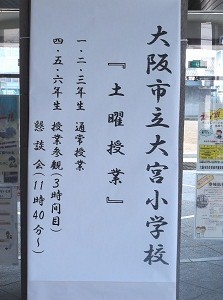 大阪市立大宮小学校
『土曜授業』
一・二・三年生　通常授業
四・五・六年生　授業参観(３時間目)
懇談会(１１時４０分～)